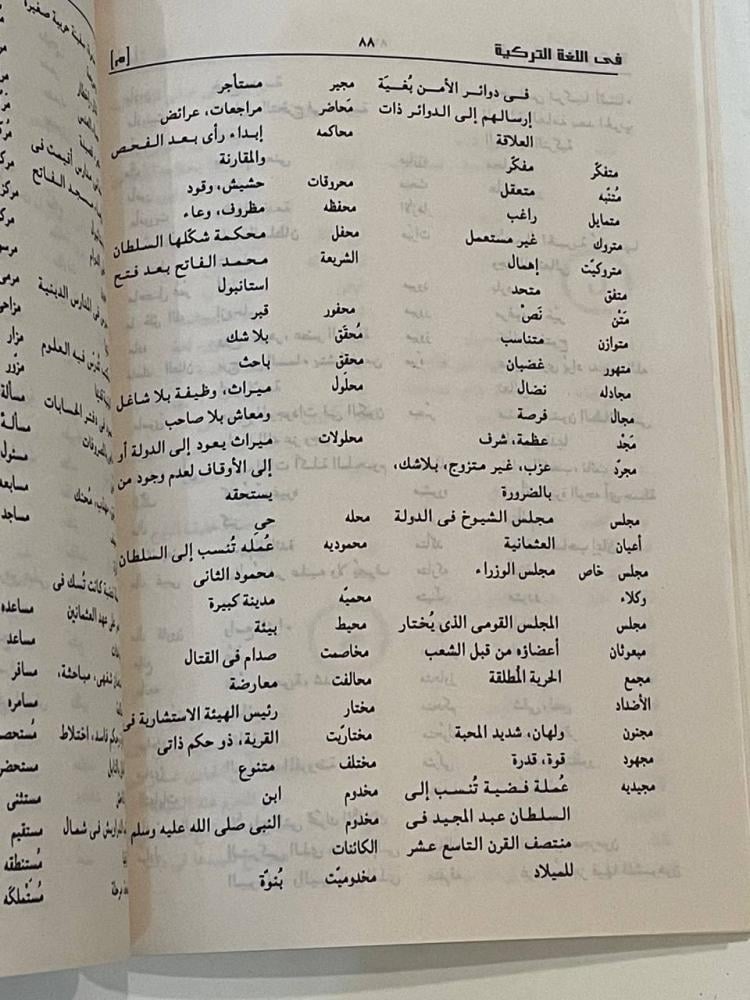 فى اللغة التركية
٨٨
[م]
فى دوائر الأمن بُغيَة
إرسالهم إلى الدوائر ذات
العلاقة
متفكّر مفكّر
مُتنّبه متعقل
متمايل راغب
متروك غير مستعمل
متروكيّت إهمال
متفق متحد
مَتْن نَصْ
متوازن متناسب
متهور غضبان
مجادله نضال
مجال فرصة
مَجْد عظمة، شرف
مجرّد عزب، غير متزوج، بلاشك،
بالضرورة
مجلس مجلس الشيوخ فى الدولة
أعيان العثمانية
مجلس خاص مجلس الوزراء
وكلاء
مجلس المجلس القومى الذى يُختار
مبعوثان أعضاؤه من قبل الشعب
مجمع الحرية المُطلقة
الأضداد
مجنون ولهان، شديد المحبة
مجهود قوة، قدرة
مجيديه عُملة فضية تُنسب إلى
السلطان عبد المجيد فى
منتصف القرن التاسع عشر
للميلاد
مجير مستأجر
مَحَاضر مراجعات، عرائض
محاكمه إبداء رأى بعد الفحص
والمقارنة
محروقات حشيش، وقود
محفظه مظروف، وعاء
محفل محكمة شكّلها السلطان
الشريعة محمد الفاتح بعد فتح
استانبول
محفور قبر
مُحقَق بلا شك
محقق باحث
محلَول ميراث، وظيفة بلا شاغل
ومعاش بلا صاحب
محلولات ميراث يعود إلى الدولة أو
إلى الأوقاف لعدم وجود من
يستحقه
محله حى
محموديه عُمله تُنسب إلى السلطان
محمود الثانى
محميّه مدينة كبيرة
محيط بيئة
مخاصمت صدام فى القتال
مخالفت معارضة
مختار رئيس الهيئة الاستشارية فى
مختاريّت القرية، ذو حكم ذاتى
مختلف متنوع
مخدوم ابن
مخدوم النبى صلى الله عليه وسلم
الكائنات
مخدوميّت بُنوّة
مزار
مزّور
مسألة
مسألة
مسئول
مساجد
مساعده
مساعد
مسافر
مسامره
مستحضر
مستثنى
مستقيم
مُستنطقه
مُستْملكَه